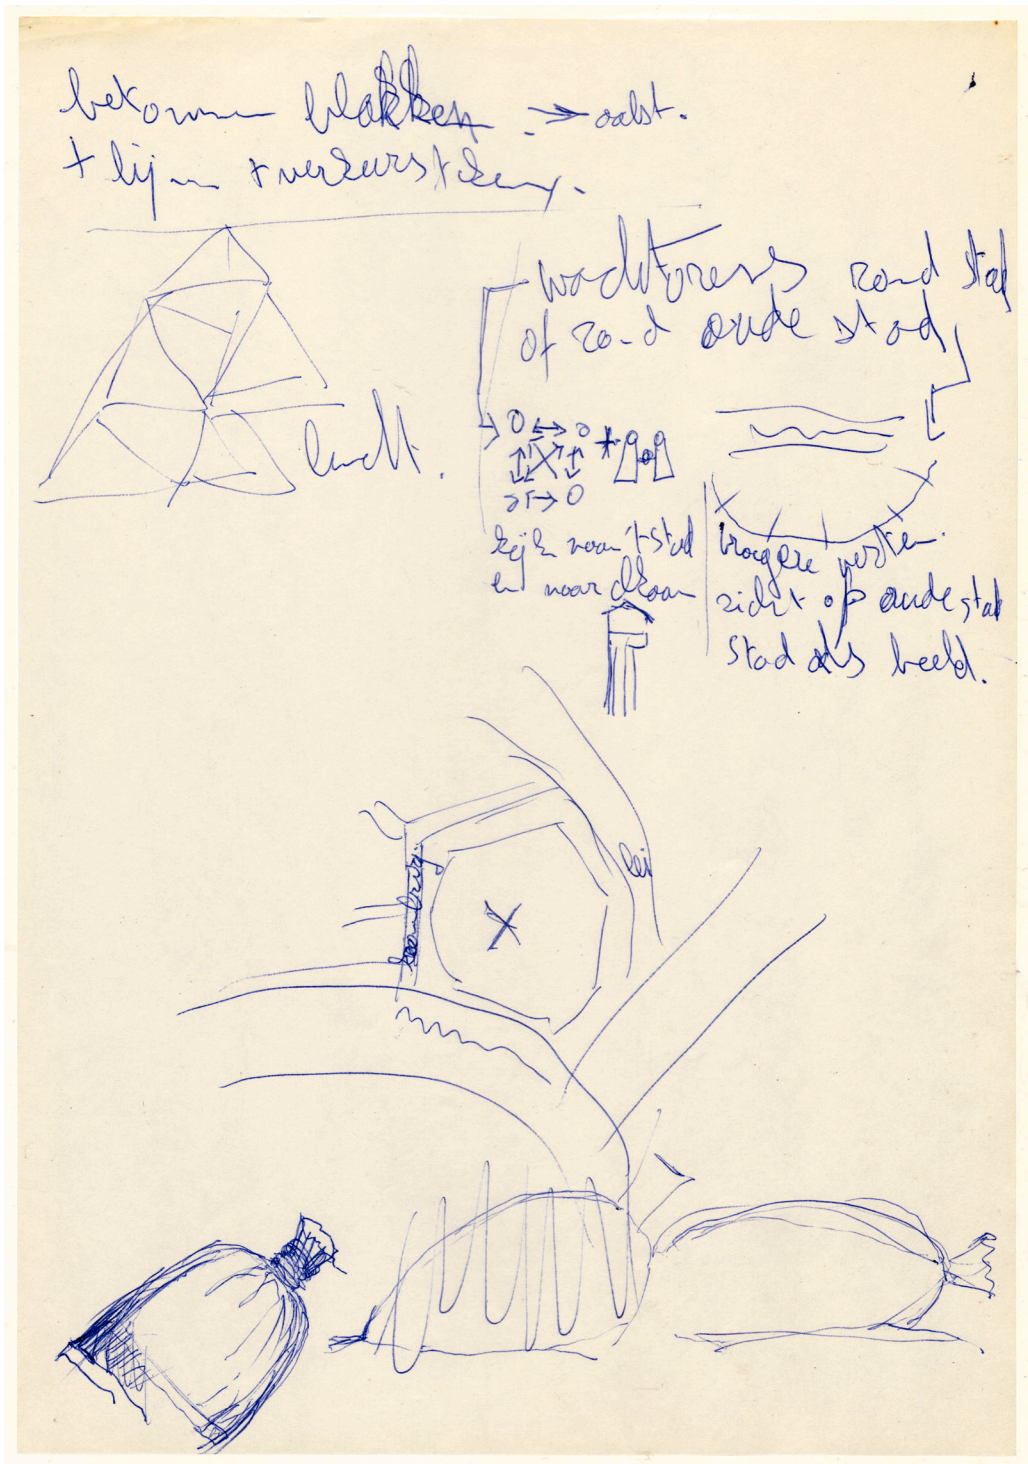 bekomen blokken → aalst.
+ lijm + verkeerstekens.
wachttorens rond stad
of rond oude stad
lucht.
kijk naar 't stad
en naar
vroegere vesten.
zicht op oude stad
stad als beeld.
lei